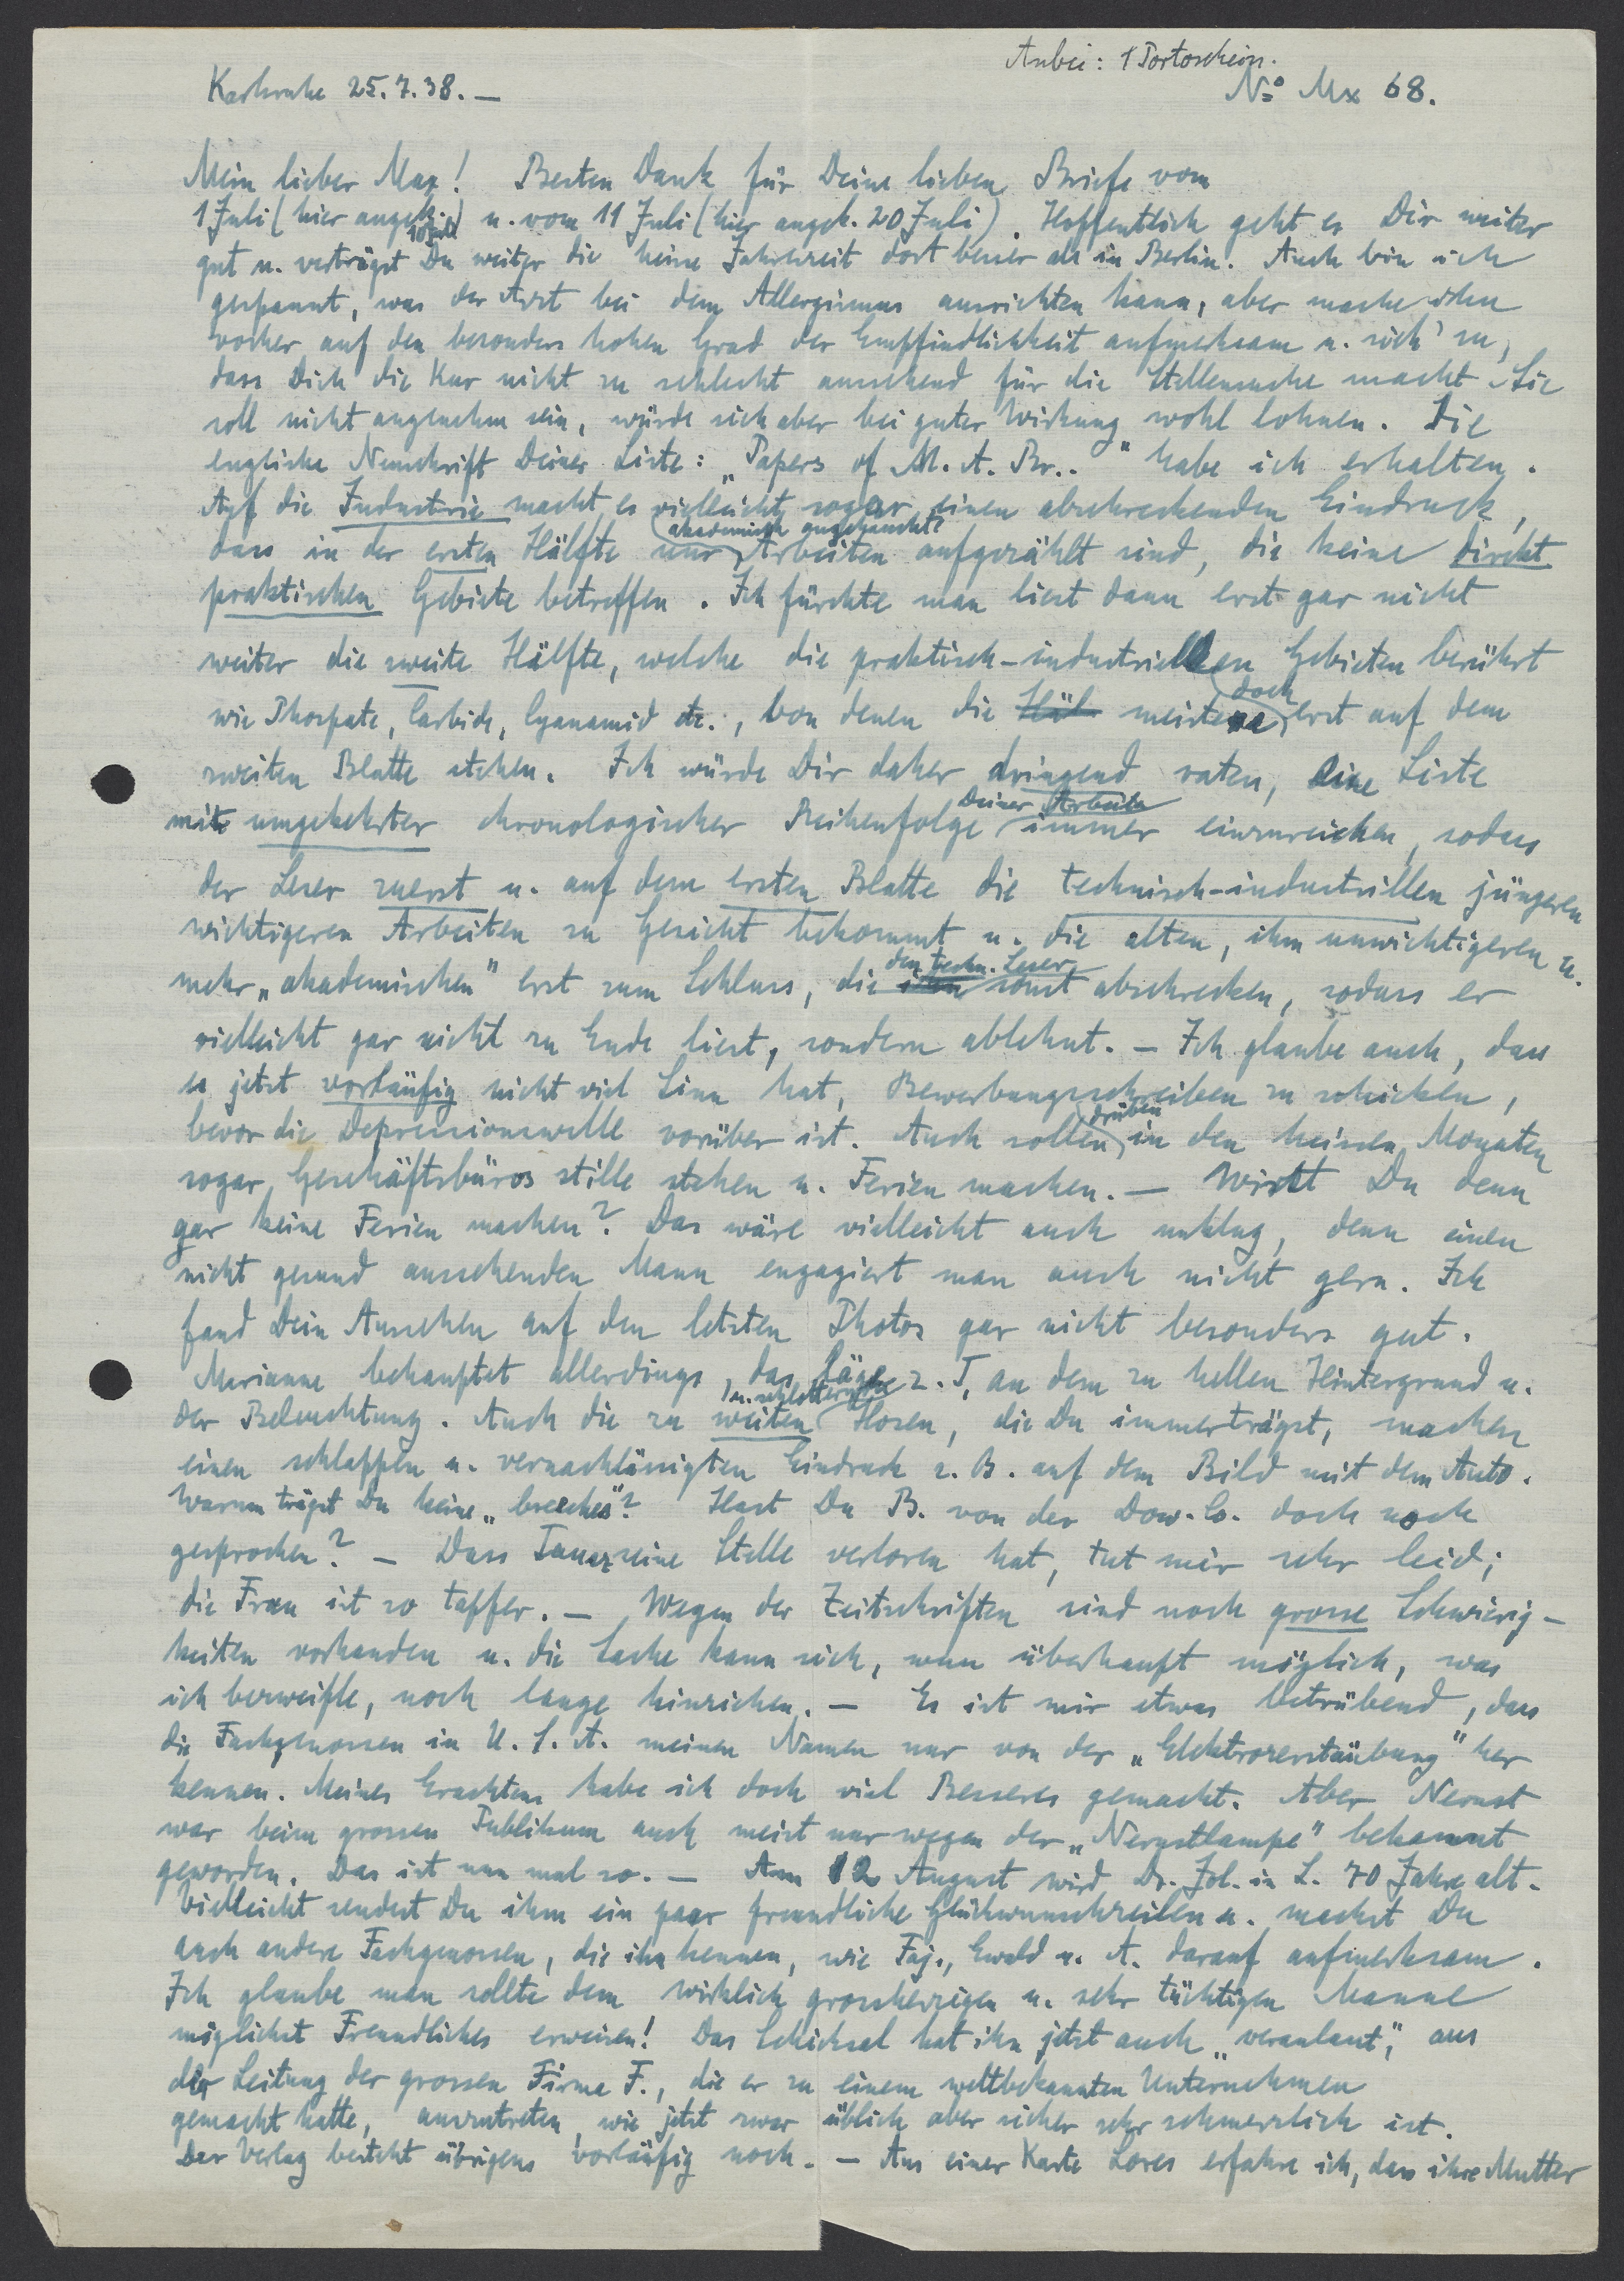 Anbei: 1 Portoschein.
Karlsruhe 25.7.38.—
No Mx 68.
Mein lieber Max! Besten Dank für Deine lieben Briefe vom
1 Juli (hier angek. 10 Juli) u. vom 11 Juli (hier angek. 20 Juli). Hoffentlich geht es Dir weiter
gut u. verträgst Du weiter die heisse Jahreszeit dort besser als in Berlin. Auch bin ich
gespannt, was der Arzt bei dem Allergismus ausrichten kann, aber mache ihn
vorher auf den besonders hohen Grad der Empfindlichkeit aufmerksam u. sieh' zu,
dass Dich die Kur nicht zu schlecht aussehend für die Stellensuche macht. Sie
soll nicht angenehm sein, würde sich aber bei guter Wirkung wohl lohnen. Die
englische Neuschrift Deiner Liste: „Papers of M. A. Br.." habe ich erhalten.
Auf die Industrie macht es vielleicht sogar einen abschreckenden Eindruck,
dass in der ersten Hälfte nur akademisch angehauchte Arbeiten aufgezählt sind, die keine direkt
praktischen Gebiete betreffen. Ich fürchte man liest dann erst gar nicht
weiter die zweite Hälfte, welche die praktisch-industriellen Gebieten berührt
wie Phospate, Carbide, Cyanamid etc., von denen die Häl meisten doch erst auf dem
zweiten Blatte stehen. Ich würde Dir daher dringend raten, eine Liste
mit umgekehrter chronologischer Reihenfolge Deiner Arbeiten immer einzureichen, sodass
der Leser zuerst u. auf dem ersten Blatte die technisch-industriellen jüngeren
wichtigeren Arbeiten zu Gesicht bekommt u. die alten, ihm unwichtigeren u.
mehr „akademischen" erst zum Schluss, die ihn den techn. Leser sonst abschrecken, sodass er
vielleicht gar nicht zu Ende liest, sondern ablehnt. — Ich glaube auch, dass
es jetzt vorläufig nicht viel Sinn hat, Bewerbungsschreiben zu schicken,
bevor die Depressionswelle vorüber ist. Auch sollen drüben in den heissen Monaten
sogar Geschäftsbüros stille stehen u. Ferien machen. — Wirst Du denn
gar keine Ferien machen? Das wäre vielleicht auch unklug, denn einen
nicht gesund aussehenden Mann engagiert man auch nicht gern. Ich
fand Dein Aussehen auf den letzten Photos gar nicht besonders gut.
Marianne behauptet allerdings, das läge z. T. an dem zu hellen Hintergrund u.
der Beleuchtung. Auch die zu weiten u. schlotternden Hosen, die Du immer trägst, machen
einen schlappen u. vernachlässigten Eindruck z. B. auf dem Bild mit dem Auto.
Warum trägst Du keine „breeches"? Hast Du B. von der Dow. Co. doch noch
gesprochen? — Dass seine Stelle verloren hat, tut mir sehr leid;
die Frau ist so tapfer. — Wegen der Zeitschriften sind noch grosse Schwierig-
keiten vorhanden u. die Sache kann sich, wenn überhaupt möglich, was
ich bezweifle, noch lange hinziehen. — Es ist mir etwas betrübend, dass
die Fachgenossen in U. S. A. meinen Namen nur von der „Elektrozerstäubung" her
kennen. Meines Erachtens habe ich doch viel Besseres gemacht. Aber Nernst
war beim grossen Publikum auch meist nur wegen der „Nernstlampe" bekannt
geworden. Das ist nun mal so. — Am 12 August wird Dr. Jol. in L. 70 Jahre alt.
Vielleicht sendest Du ihm ein paar freundliche Glückwunschzeilen u. machst Du
auch andere Fachgenossen, die ihn kennen, wie Faj., Ewald u. A. darauf aufmerksam.
Ich glaube man sollte dem wirklich grossherzigen u. sehr tüchtigen Manne
möglichst Freundliches erweisen! Das Schicksal hat ihn jetzt auch „veranlasst", aus
der Leitung der grossen Firma F., die er zu einem weltbekannten Unternehmen
gemacht hatte, auszutreten, wie jetzt zwar üblich aber sicher sehr schmerzlich ist.
Der Verlag besteht übrigens vorläufig noch. — Aus einer Karte Lores erfahre ich, dass ihre Mutter